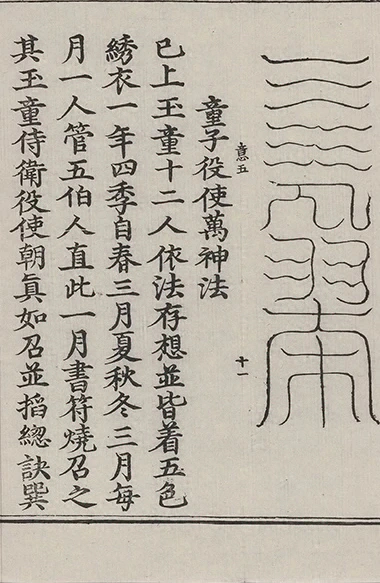 意五
十一
童子役使萬神法
已上玉童十二人依法存想並皆着五色
綉衣一年四季自春三月夏秋冬三月每
月一人管五伯人直此一月書符燒召之
其玉童侍衛役使朝真如召並搯總訣巽